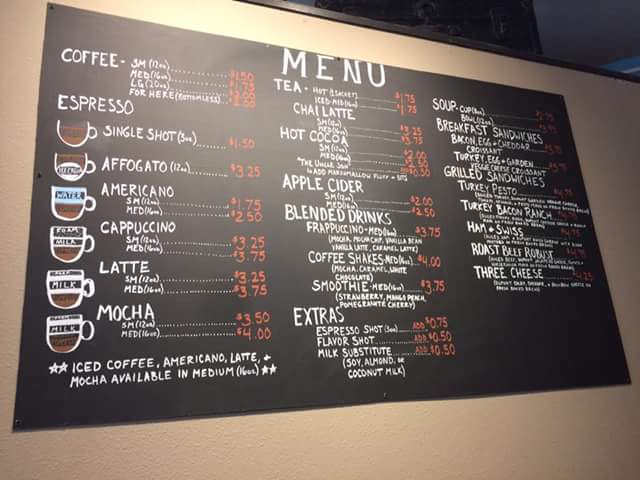 MENU
COFFEE- SM (12oz) $1.50
MED (16oz) $1.75
LG (20oz) $2.00
FOR HERE (BOTTOMLESS) $2.50
ESPRESSO
SINGLE SHOT (3oz) $1.50
ICE CREAM
AFFOGATO (12oz) $3.25
WATER
AMERICANO
SM (12oz) $1.75
MED (16oz) $2.50
FOAM
MILK
CAPPUCCINO
SM (12oz) $3.25
MED (16oz) $3.75
MILK
LATTE
SM (12oz) $3.25
MED (16oz) $3.75
MILK
MOCHA
SM (12oz) $3.50
MED (16oz) $4.00
★★ ICED COFFEE, AMERICANO, LATTE, +
MOCHA AVAILABLE IN MEDIUM (16oz) ★★
TEA - HOT $1.75
ICED-MED (16oz) $1.75
CHAI LATTE
SM (12oz) $3.25
MED (16oz) $3.75
HOT COCOA
SM (12oz) $2.00
MED (16oz) $2.50
"THE UNCLE JON"
APPLE CIDER
SM (12oz) $2.00
MED (16oz) $2.50
BLENDED DRINKS
FRAPPUCCINO-MED (16oz) $3.75
(MOCHA, MOCHA CHIP, VANILLA BEAN
VANILLA LATTE, CARAMEL LATTE)
COFFEE SHAKES-MED (16oz) $4.00
(MOCHA, CARAMEL, WHITE
CHOCOLATE)
SMOOTHIE-MED (16oz) $3.75
(STRAWBERRY, MANGO PEACH,
POMEGRANITE CHERRY)
EXTRAS
ESPRESSO SHOT (3oz) ADD $0.75
FLAVOR SHOT ADD $0.50
MILK SUBSTITUTE ADD $0.50
(SOY, ALMOND, OR
COCONUT MILK)
SOUP-CUP (8oz) $2.75
BOWL (12oz) $3.75
BREAKFAST SANDWICHES
BACON, EGG + CHEDDAR
CROISSANT
TURKEY, EGG + GARDEN
VEGGIE CHEESE CROISSANT
GRILLED SANDWICHES
TURKEY PESTO $4.75
TURKEY BACON RANCH
HAM + SWISS $4.75
ROAST BEEF ROBUST $4.75
THREE CHEESE $4.25